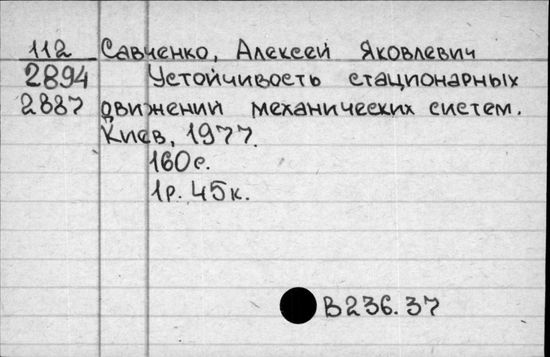 112 Савченко, Алексей Яковлевич
2894 Устойчивость стационарных
2887 движений механических систем.
Киев, 1977.
160с.
1р. 45к.
В236.37